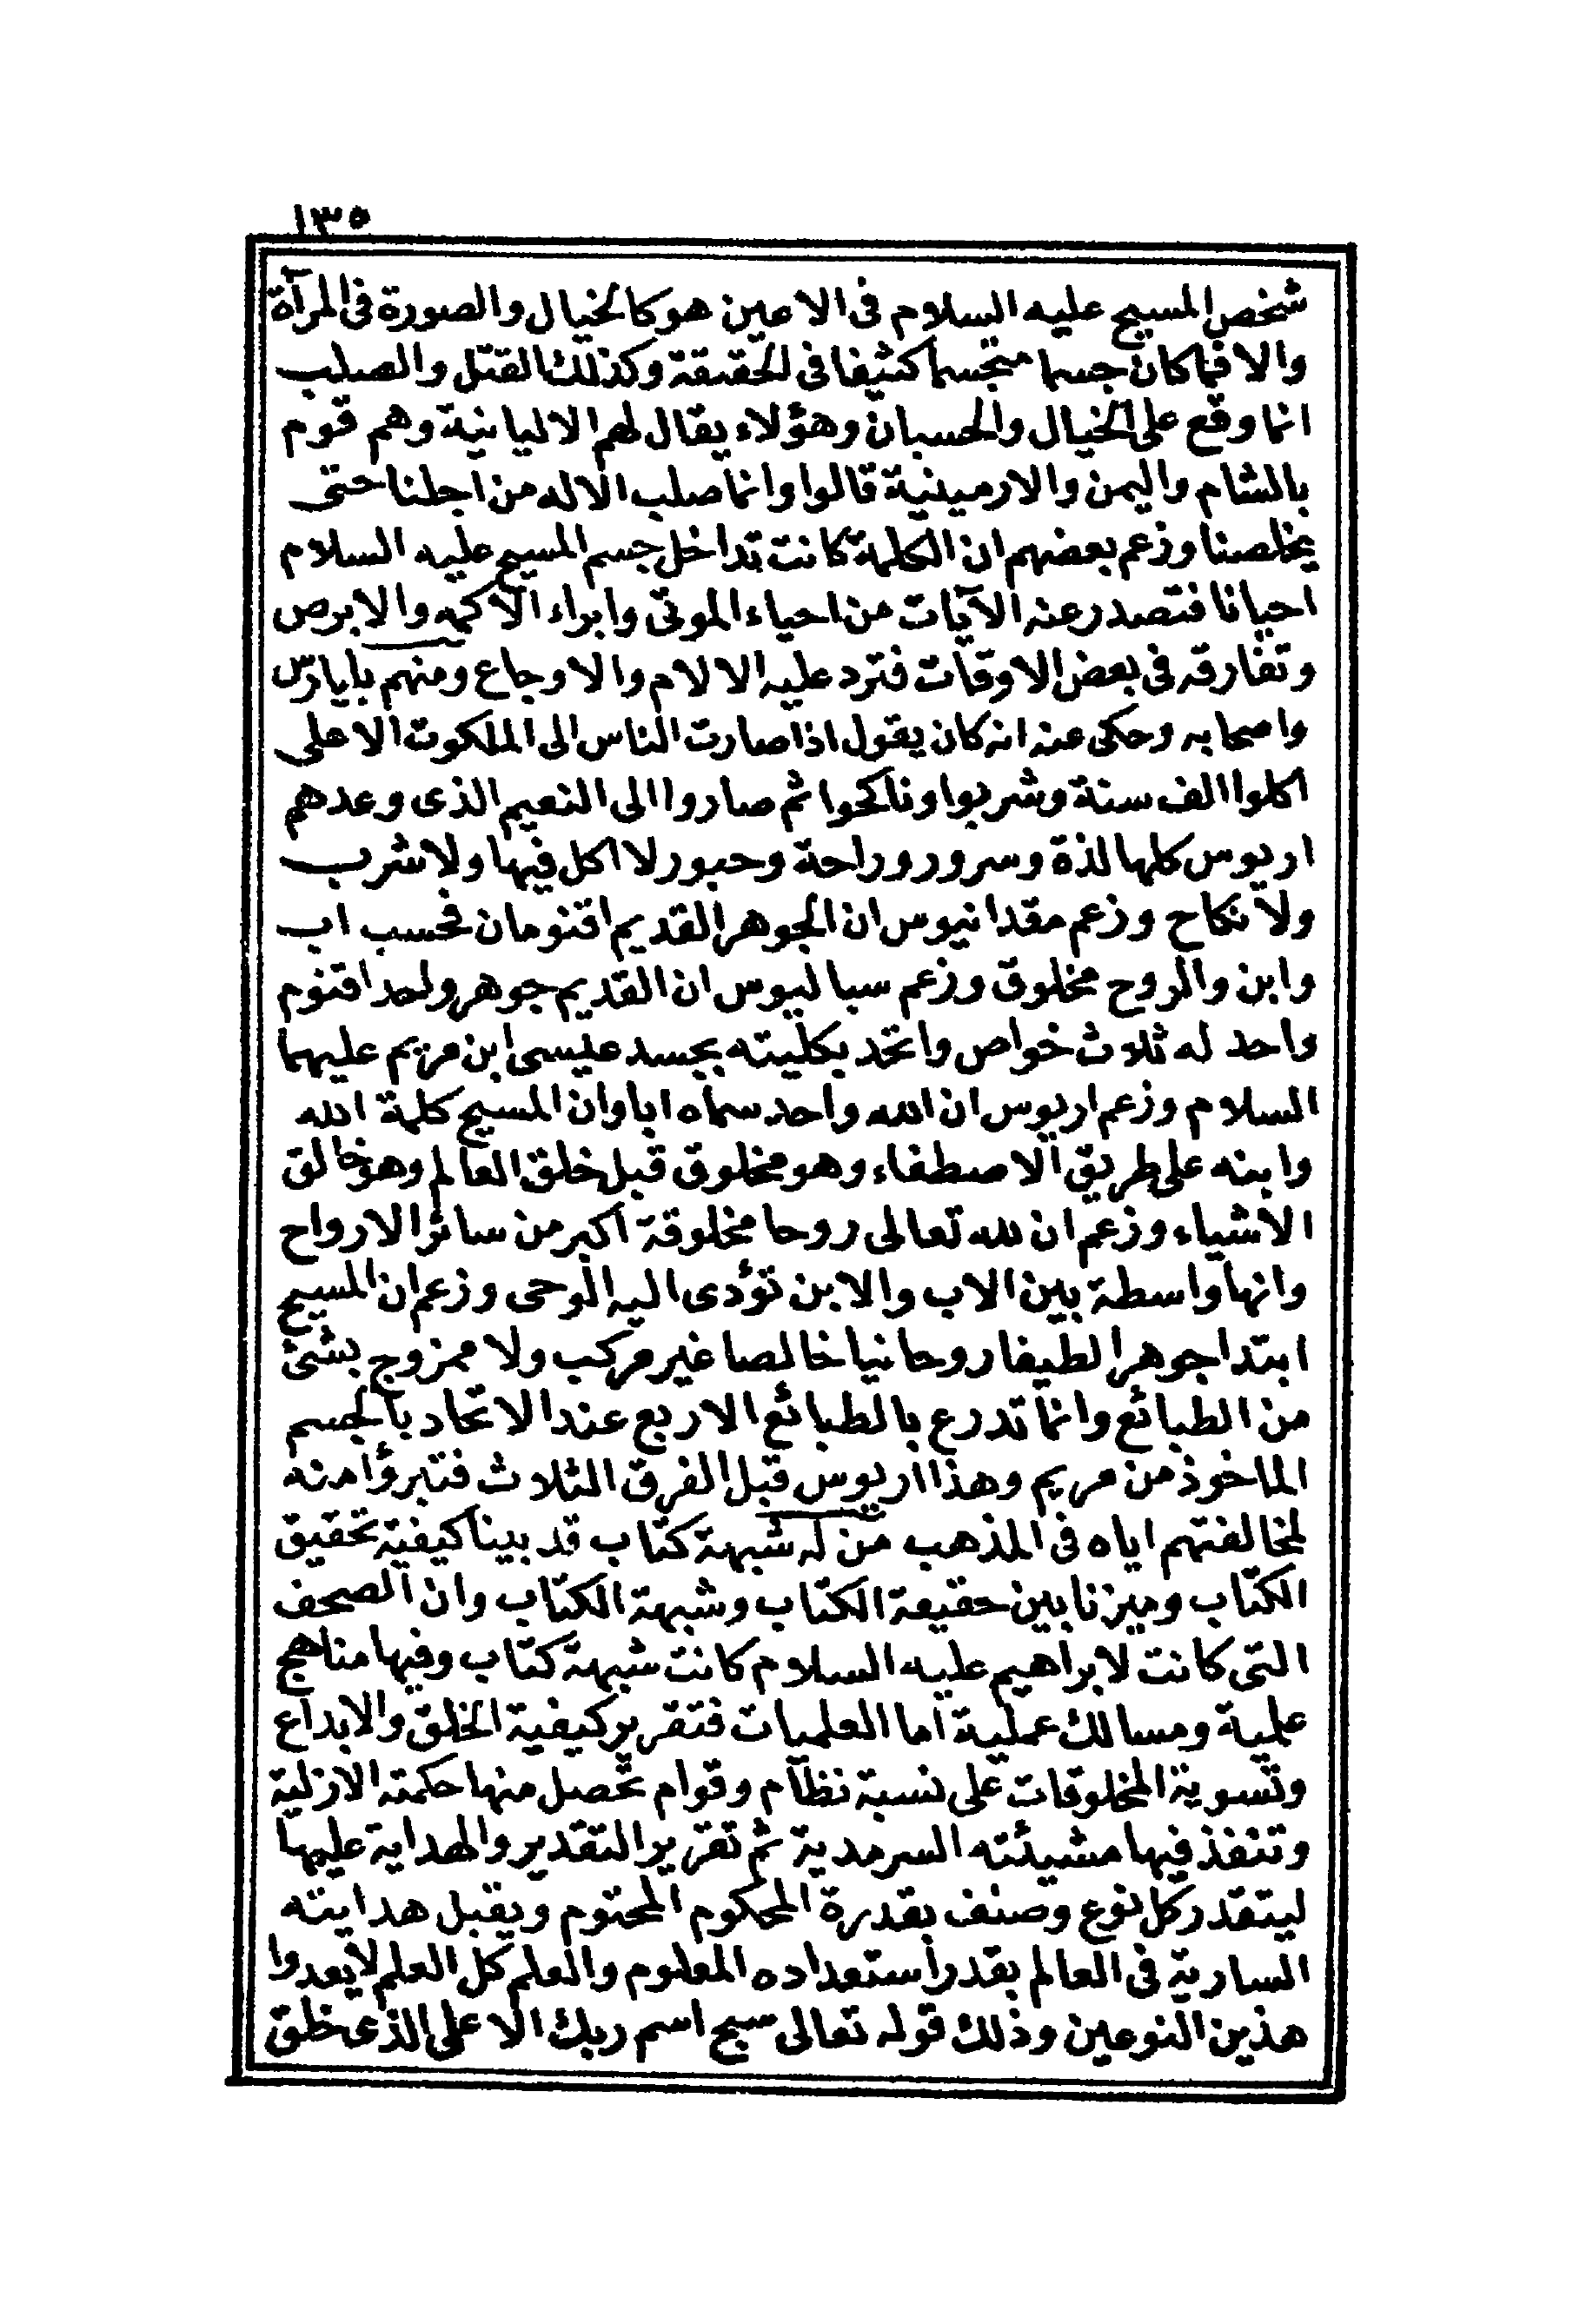 ١٣٥
شخص المسيح عليه السلام فى الاعين هو كالخيال والصورة فى المرآة
والا فما كان جسما متجسما كثيفا فى الحقيقة وكذلك القتل والصلب
انما وقع على الخيال والحسبان وهؤلاء يقال لهم الاليانية وهم قوم
بالشام واليمن والارمينية قالوا وانما صلب الاله من اجلنا حتى
يخلصنا وزعم بعضهم ان الكلمة كانت تداخل جسم المسيح عليه السلام
احيانا فتصدر عنه الآيات من احياء الموتى وابراء الاكمه والابرص
وتفارقه فى بعض الاوقات فترد عليه الالام والاوجاع ومنهم بليارس
واصحابه وحكى عنه انه كان يقول اذا صارت الناس الى الملكوت الاعلى
اكلوا الف سنة وشربوا وناكحوا ثم صاروا الى النعيم الذى وعدهم
اريوس كلها لذة وسرور وراحة وحبور لا اكل فيها ولا شرب
ولا نكاح وزعم مقدانيوس ان الجوهر القديم اقنومان فحسب اب
وابن والروح مخلوق وزعم سباليوس ان القديم جوهر واحد اقنوم
واحد له ثلاث خواص واتحد بكليته بجسد عيسى ابن مريم عليهما
السلام وزعم اريوس ان الله واحد سماه ابا وان المسيح كلمة الله
وابنه على طريق الاصطفاء وهو مخلوق قبل خلق العالم وهو خالق
الاشياء وزعم ان لله تعالى روحا مخلوقة اكبر من سائر الارواح
وانها واسطة بين الاب والابن تؤدى اليه الوحى وزعم ان المسيح
ابتدا جوهرا لطيفا روحانيا خالصا غير مركب ولا ممزوج بشئ
من الطبائع وانما تدرع بالطبائع الاربع عند الاتحاد بالجسم
الماخوذ من مريم وهذا اريوس قبل الفرق الثلاث فتبرؤا منه
لمخالفتهم اياه فى المذهب من له شبهة كتاب قد بينا كيفية تحقيق
الكتاب وميزنا بين حقيقة الكتاب وشبهة الكتاب وان الصحف
التى كانت لابراهيم عليه السلام كانت شبهة كتاب وفيها مناهج
علمية ومسالك عملية اما العلميات فتقرير كيفية الخلق والابداع
وتسوية المخلوقات على نسبة نظام وقوام تحصل منها حكمته الازلية
وتنفذ فيها مشيئته السرمدية ثم تقرير التقدير والهداية عليها
ليتقدر كل نوع وصنف بقدرة المحكوم المحتوم ويقبل هدايته
السارية فى العالم بقدر استعداده المعلوم والعلم كل العلم لا يعدوا
هذين النوعين وذلك قوله تعالى سبح اسم ربك الاعلى الذى خلق